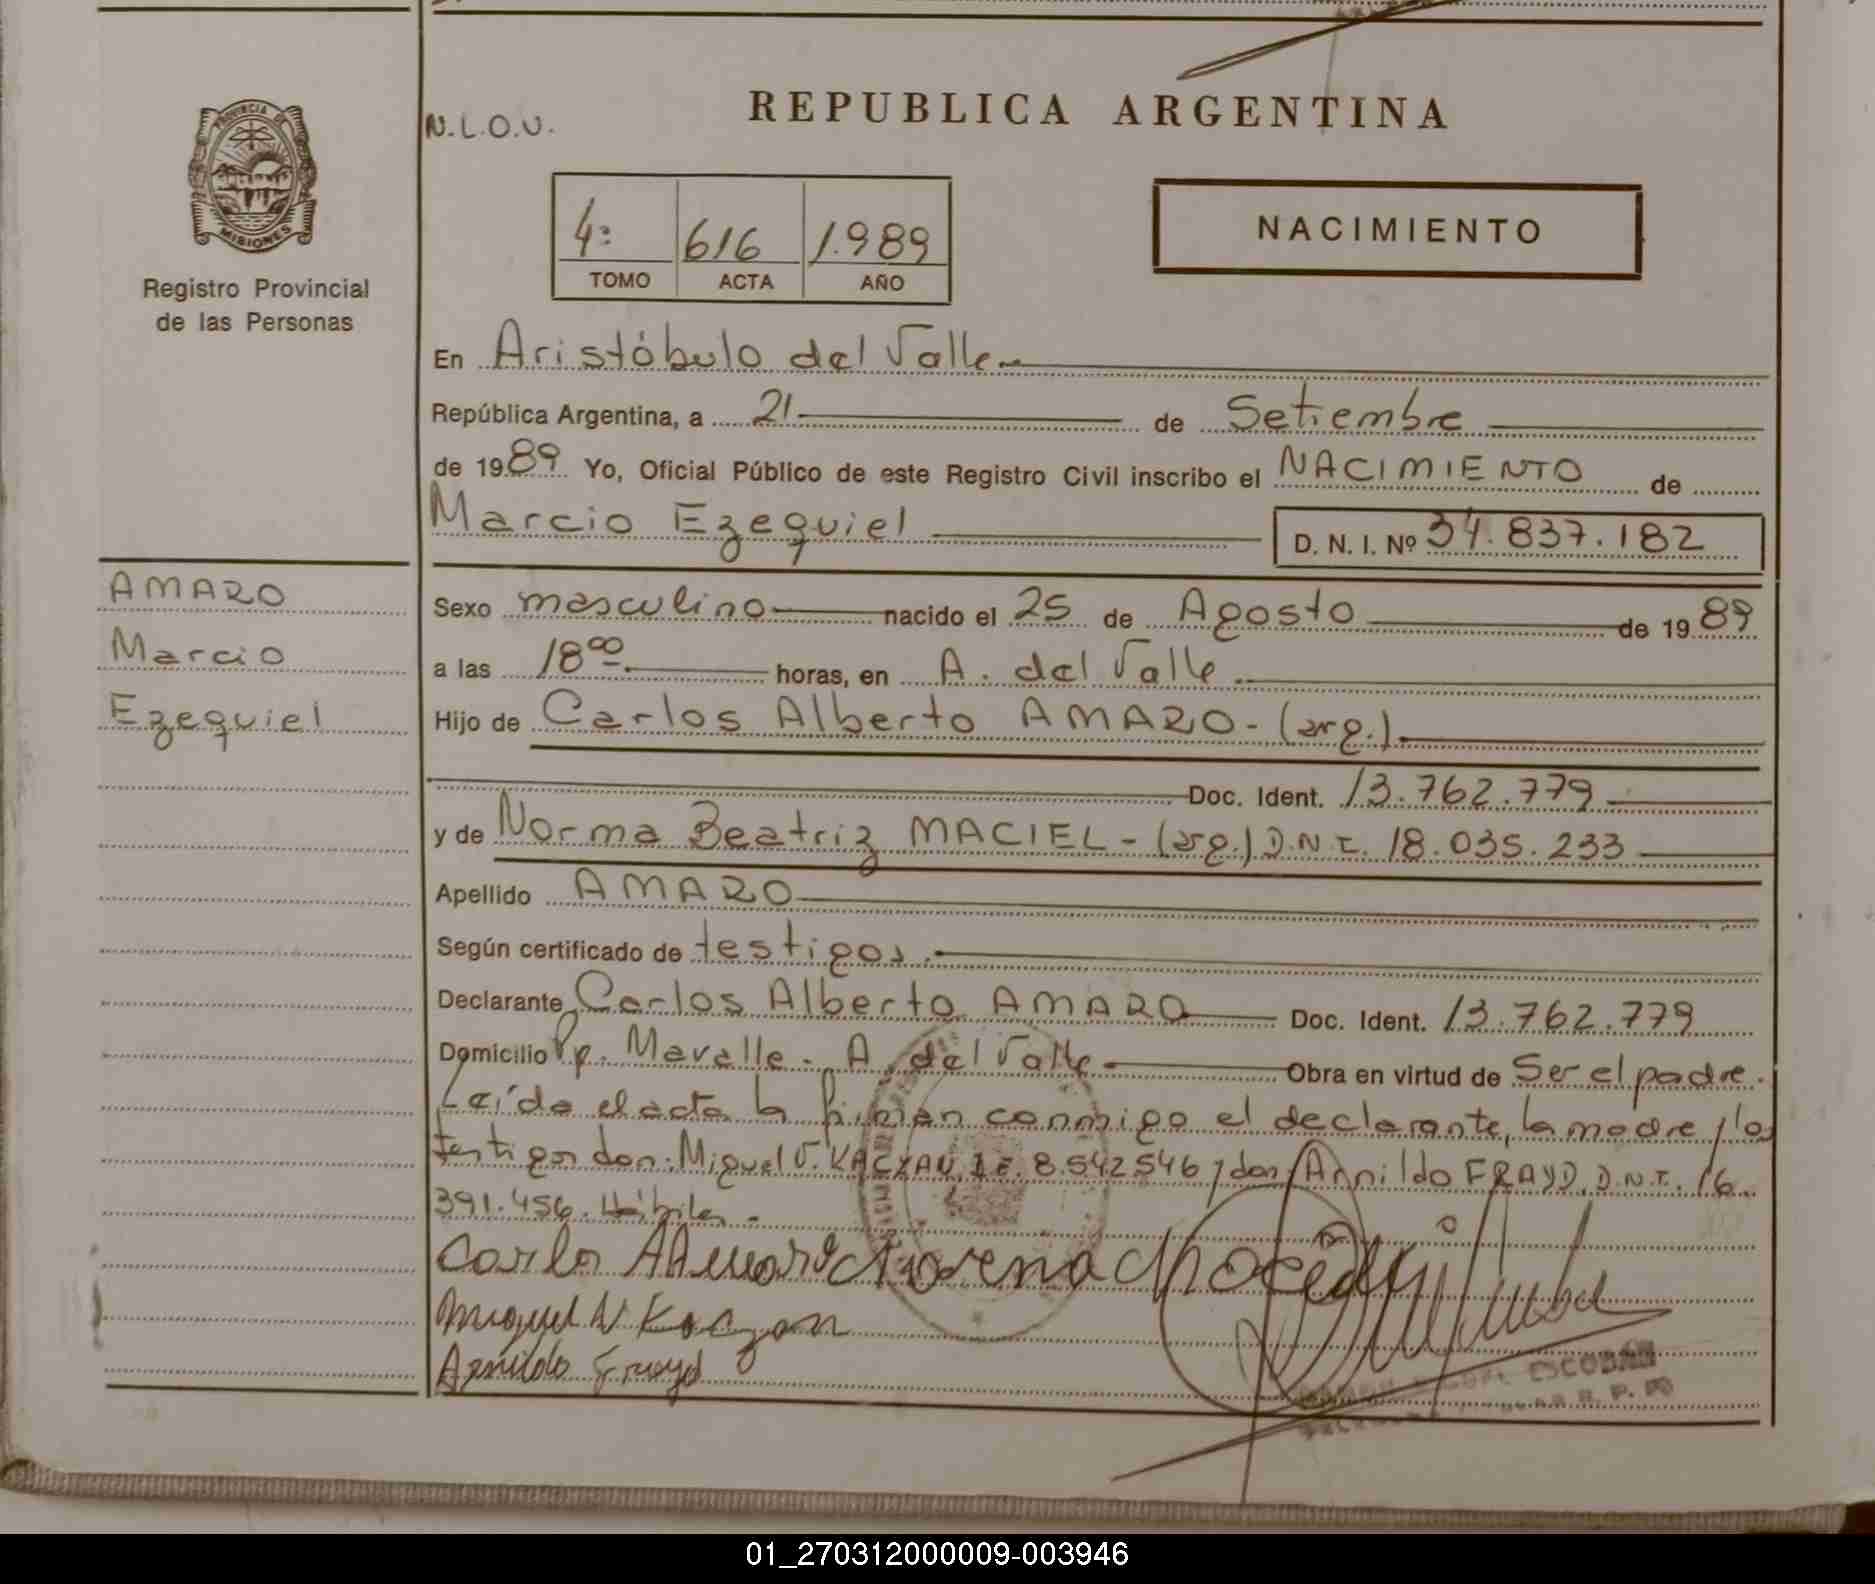 PROVINCIA DE
MISIONES
Registro Provincial
de las Personas
AMARO
Marcio
Ezequiel
N.L.O.U.
REPUBLICA ARGENTINA
4º 616 1.989
TOMO ACTA AÑO
NACIMIENTO
En Aristóbulo del Valle
República Argentina, a 21 de Setiembre
de 1989 Yo, Oficial Público de este Registro Civil inscribo el NACIMIENTO de
Marcio Ezequiel D. N. I. Nº 34.837.182
Sexo masculino nacido el 25 de Agosto de 1989
a las 18⁰⁰ horas, en A. del Valle
Hijo de Carlos Alberto AMARO - (arg.)
Doc. Ident. 13.762.779
y de Norma Beatriz MACIEL - (arg.) D.N.I. 18.035.233
Apellido AMARO
Según certificado de testigos.
Declarante Carlos Alberto AMARO Doc. Ident. 13.762.779
Domicilio Pp. Mavalle - A. del Valle Obra en virtud de Ser el padre.
Leída el acta la firman conmigo el declarante, la madre y los
testigos don: Miguel V. KACZAN, L.E. 8.542.546 y don Arnildo FRAYD, D.N.I. 16.
391.456. Hábiles -
Carlos A Amaro
Miguel V Kaczan
Arnildo Frayd
ESCOBAR
R. P. P.
01_270312000009-003946